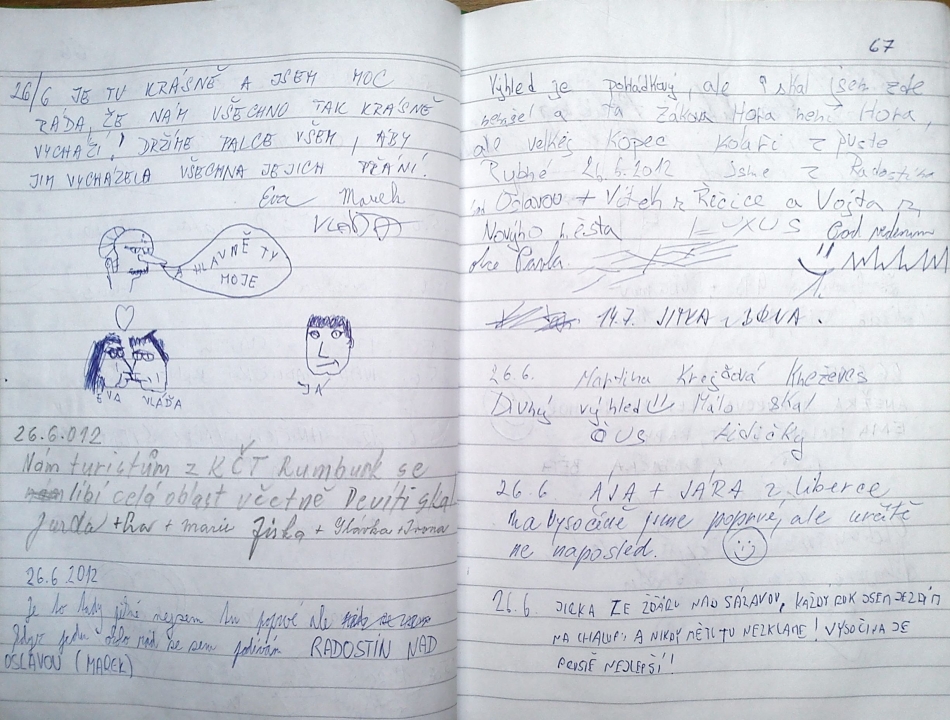 26/6 JE TU KRÁSNĚ A JSEM MOC
RÁDA, ŽE NÁM VŠECHNO TAK KRÁSNĚ
VYCHÁZÍ! DRŽÍME PALCE VŠEM, ABY
JIM VYCHÁZELA VŠECHNA JEJICH PŘÁNÍ!
Eva Marek
VLÁĎA
A HLAVNĚ TY
MOJE
EVA VLÁĎA
JÁ
26.6.012
Nám turistům z KČT Rumburk se
líbí celá oblast včetně Devíti skal
Jarda + + marie Jiška + Slávka + Ivana
26.6.2012
Je to tady pěkné nejsem tu poprvé ale
když jedu okolo rád se sem podívám RADOSTÍN NAD
OSLAVOU (MAREK)
67
Výhled je pohádkový, ale 9 skal jsem zde
nenašel a ta Žákova Hora není Hora,
ale velkej kopec Kolaři z pusté
Rybné 26.6.2012 Jsme z Radostína
nad Oslavou + Vítek z Řečice a Vojta z
Novýho Města LUXUS God
Pavla.
14.7. JITKA
26.6. Martina Krejčová Kněževes
Divný výhled Málo skal
ČUS Lidičky
26.6 ÁJA + JÁRA z Liberce
Na Vysočině jsme poprvé, ale určitě
ne naposled.
26.6. JIRKA ZE ŽĎÁRU NAD SÁZAVOU, KAŽDÝ ROK JSEM JEZDÍM
NA CHALUPU A NIKDY MĚ TO TU NEZKLAME! VYSOČINA JE
PROSTĚ NEJLEPŠÍ!